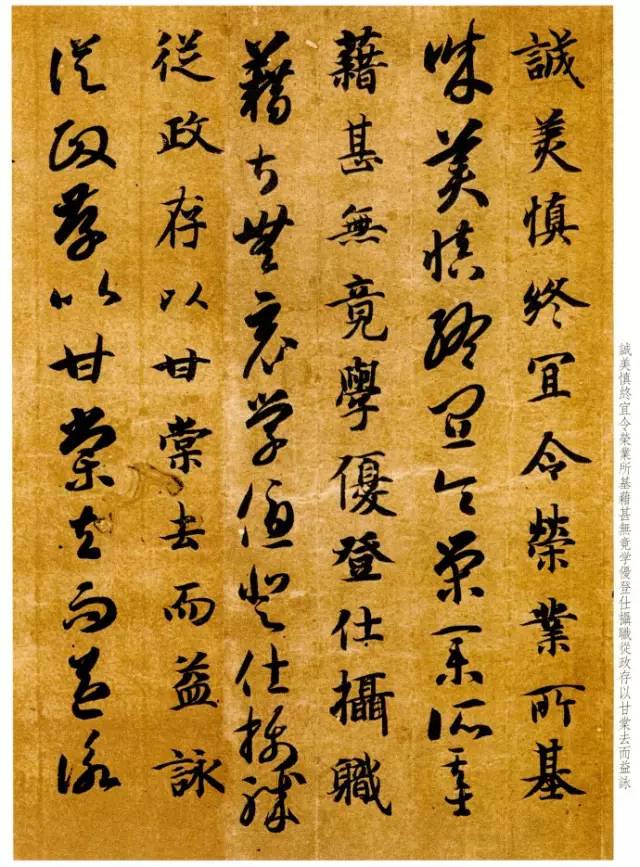 誠美慎終宜令榮業所基藉甚無竟学優登仕攝職從政存以甘棠去而益詠
誠美慎終宜令榮業所基
誠美慎終宜令榮業所基
藉甚無竟學優登仕攝職
藉甚無竟学優登仕攝職
從政存以甘棠去而益詠
從政存以甘棠去而益詠